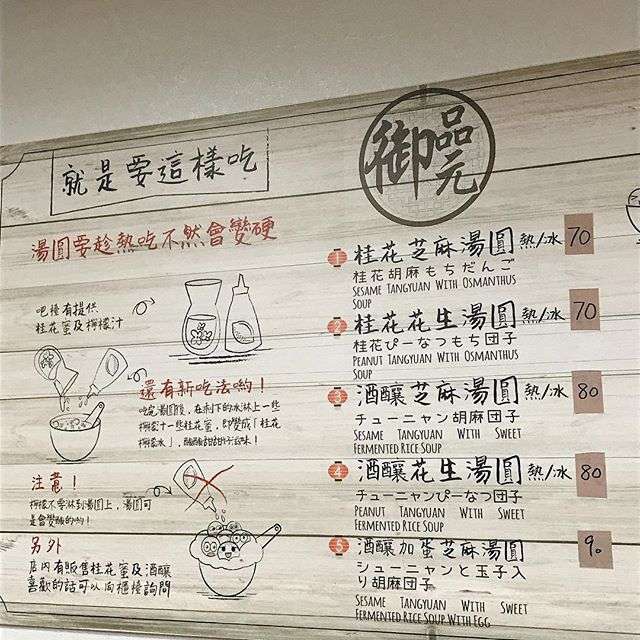 就是要這樣吃
湯圓要趁熱吃不然會變硬
吧檯有提供
桂花蜜及檸檬汁
還有新吃法喲！
吃完湯圓後，在剩下的冰淋上一些
檸檬汁一些桂花蜜，即變成「桂花
檸檬冰」，酸酸甜甜好滋味！
注意！
檸檬不要淋到湯圓上，湯圓可
是會變酸的喲！
另外
店內有販售桂花蜜及酒釀
喜歡的話可以向櫃檯詢問
御品元
1 桂花芝麻湯圓 熱/冰 70
桂花胡麻もちだんご
Sesame Tangyuan With Osmanthus
Soup
2 桂花花生湯圓 熱/冰 70
桂花ぴーなつもち団子
Peanut Tangyuan With Osmanthus
Soup
3 酒釀芝麻湯圓 熱/冰 80
チューニャン胡麻団子
Sesame Tangyuan With Sweet
Fermented Rice Soup
4 酒釀花生湯圓 熱/冰 80
チューニャンぴーなつ団子
Peanut Tangyuan With Sweet
Fermented Rice Soup
5 酒釀加蛋芝麻湯圓 90
シューニャンと玉子入
り胡麻団子
Sesame Tangyuan With Sweet
Fermented Rice Soup With Egg